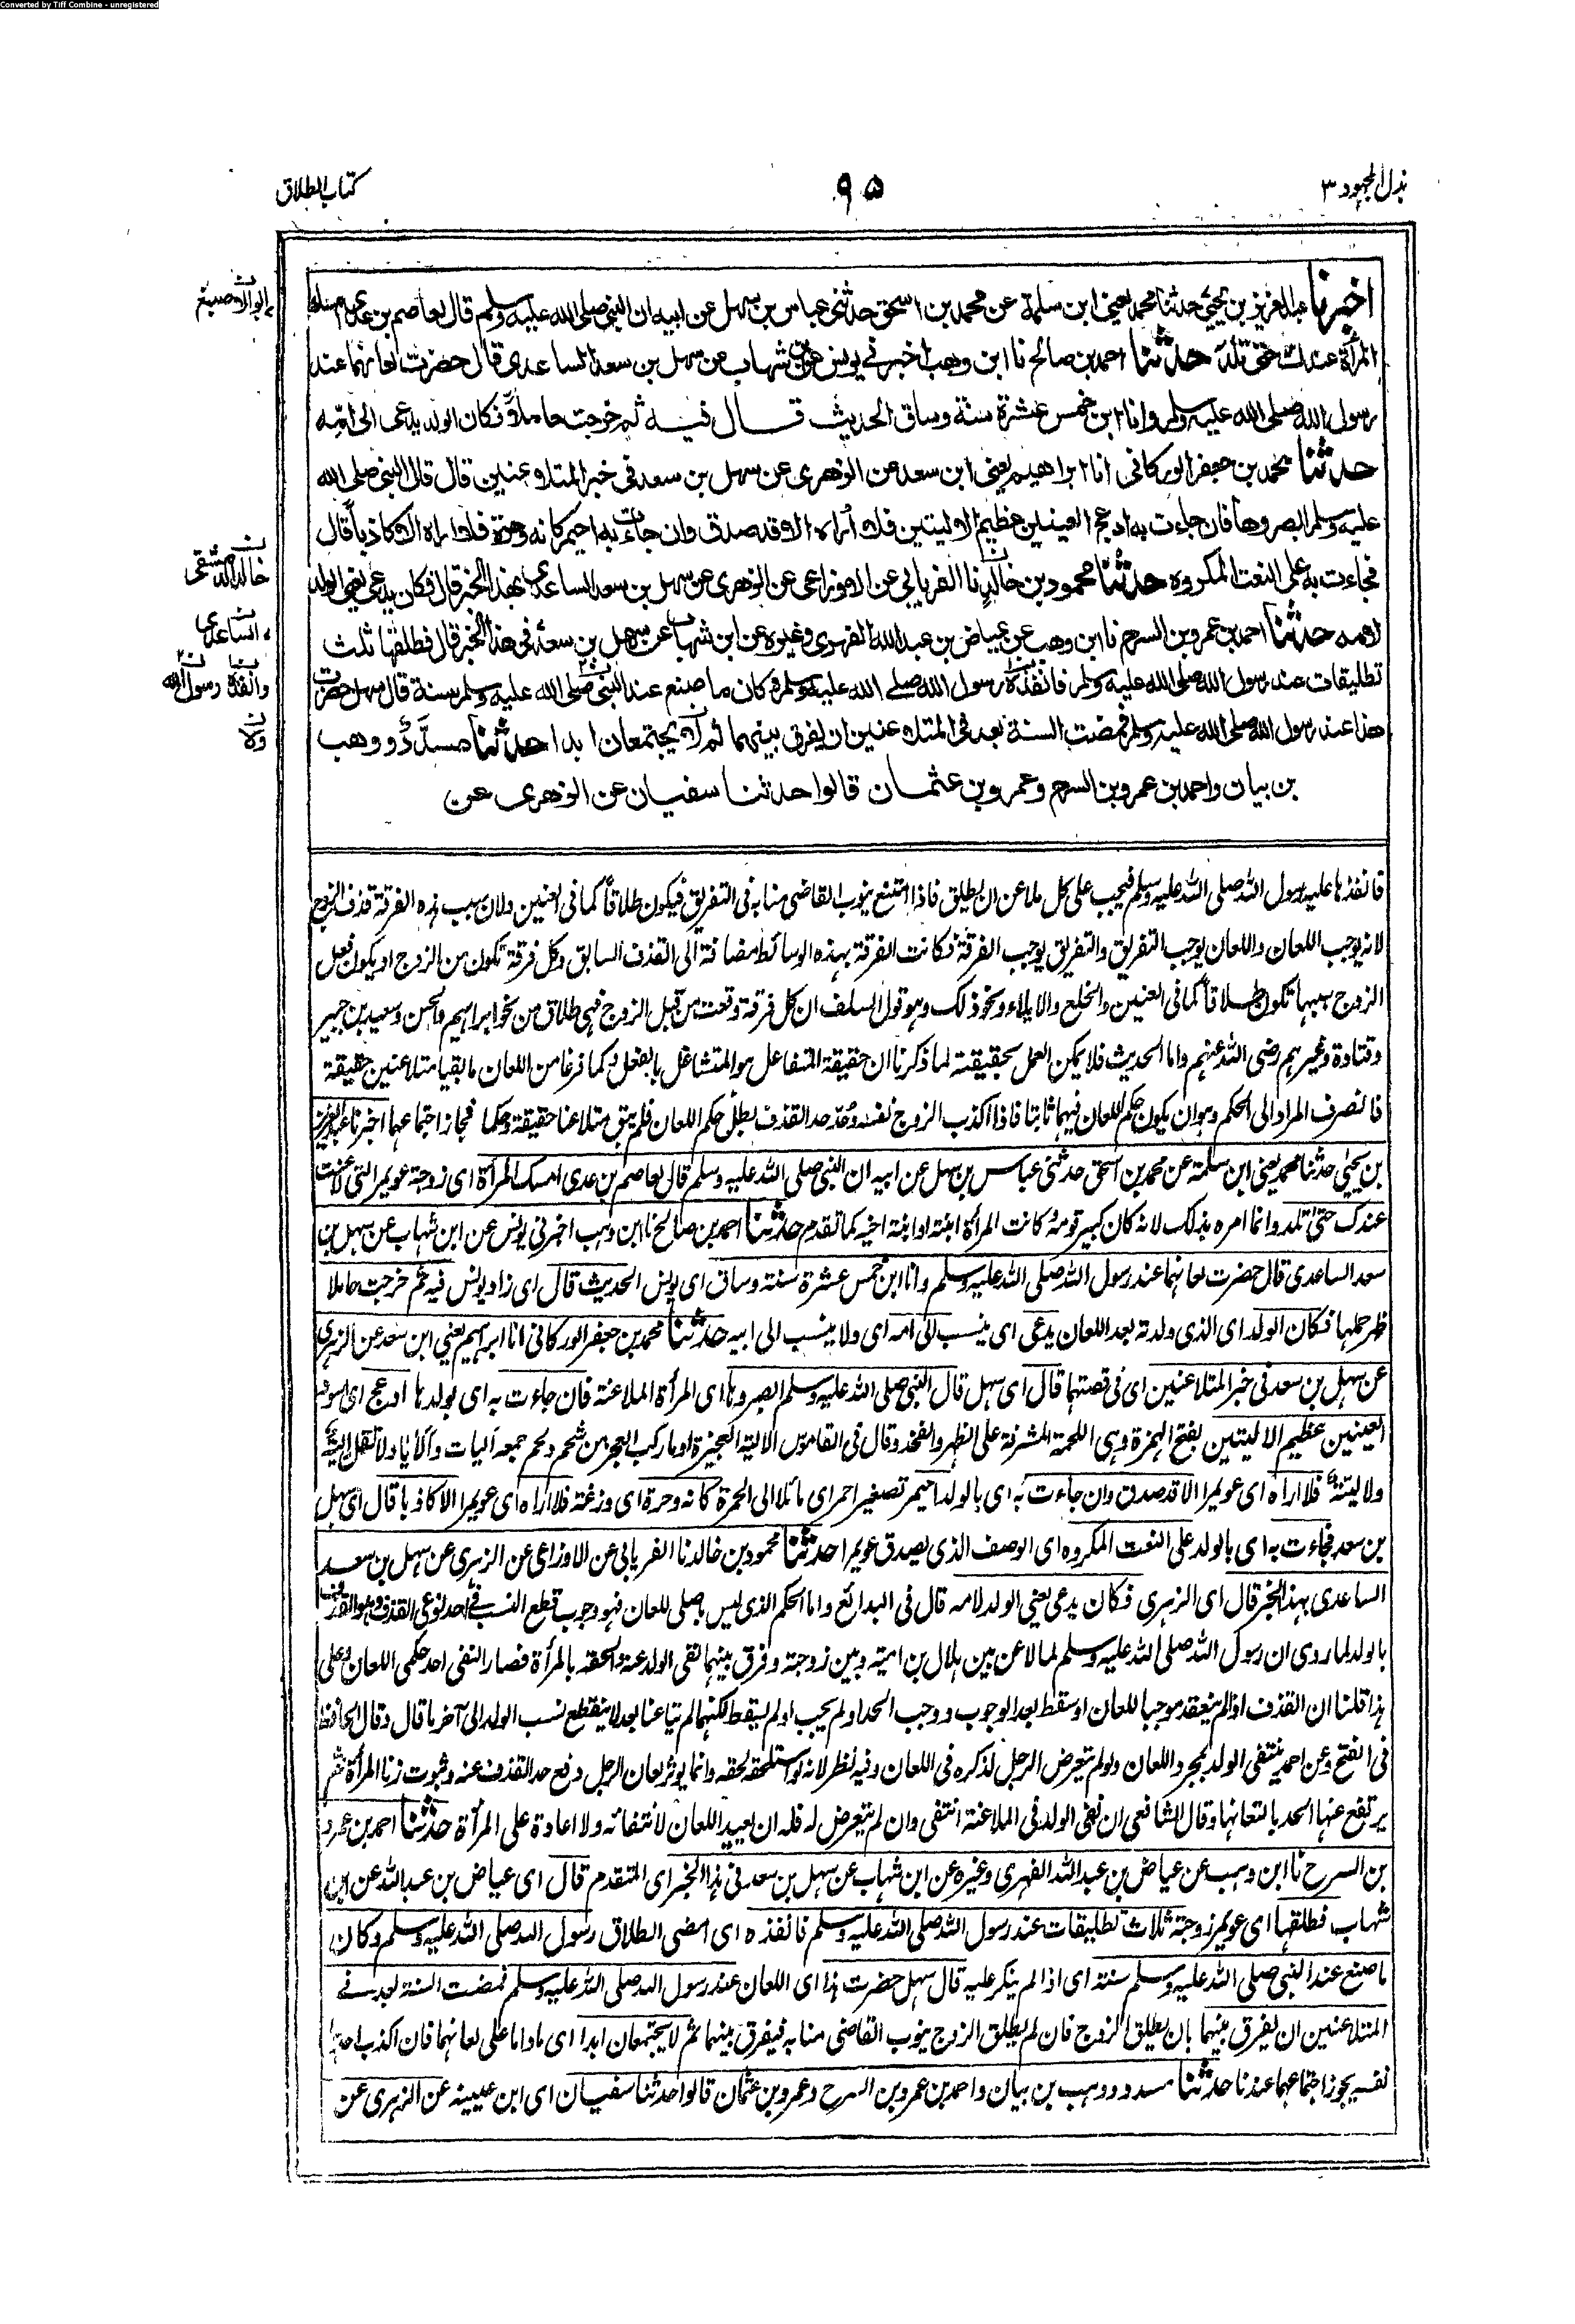 Converted by Tiff Combine - unregistered
بذل المجهود ٣
٩٥
كتاب الطلاق
اخبرنا عبد العزيز بن يحيى حدثنا محمد يعني ابن سلمة عن محمد بن اسحق حدثني عباس بن سهل عن ابيه ان النبي صلى الله عليه وسلم قال لعاصم بن عدي امسك
المرأة عندك حتى تلد حدثنا احمد بن صالح نا ابن وهب اخبرني يونس عن ابن شهاب عن سهل بن سعد الساعدي قال حضرت لعانهما عند
رسول الله صلى الله عليه وسلم وانا ابن خمس عشرة سنة وساق الحديث قال فيه ثم خرجت حاملا فكان الولد يدعى الى امه
حدثنا محمد بن جعفر الوركاني انا ابراهيم يعني ابن سعد عن الزهري عن سهل بن سعد في خبر المتلاعنين قال قال النبي صلى الله
عليه وسلم ابصروها فان جاءت به ادعج العينين عظيم الاليتين فلا أراه الا قد صدق وان جاءت به احيمر كانه وحرة فلا اراه الا كاذباً قال
فجاءت به على النعت المكروه حدثنا محمود بن خالد نا الفريابي عن الاوزاعي عن الزهري عن سهل بن سعد الساعدي بهذا الخبر قال فكان يدعى يعني الولد
لامه حدثنا احمد بن عمرو بن السرح نا ابن وهب عن عياض بن عبد الله الفهري وغيره عن ابن شهاب عن سهل بن سعد في هذا الخبر قال فطلقها ثلث
تطليقات عند رسول الله صلى الله عليه وسلم فانفذه رسول الله صلى الله عليه وسلم وكان ما صنع عند النبي صلى الله عليه وسلم سنة قال سهل حضرت
هذا عند رسول الله صلى الله عليه وسلم فمضت السنة بعد في المتلاعنين ان يفرق بينهما ثم لا يجتمعان ابدا حدثنا مسدد ووهب
بن بيان واحمد بن عمرو بن السرح وعمرو بن عثمان قالوا حدثنا سفيان عن الزهري عن
ابو الاصبغ
خالد الدمشقي
الساعدي
رسول الله
ولا
فانفذها عليه رسول الله صلى الله عليه وسلم فيجب على كل ملاعن ان يطلق فاذا امتنع ينوب القاضي منابه في التفريق فيكون طلاقاً كما في العنين ولان سبب هذه الفرقة قذف الزوج
لانه يوجب اللعان واللعان يوجب التفريق والتفريق يوجب الفرقة فكانت الفرقة بهذه الوسائط مضافة الى القذف السابق وكل فرقة تكون من الزوج او يكون فعل
الزوج سببها تكون طلاقا كما في العنين والخلع والايلاء ونحو ذلك وهو قول السلف ان كل فرقة وقعت من قبل الزوج فهي طلاق من نحو ابراهيم والحسن وسعيد بن جبير
وقتادة وغيرهم رضي الله عنهم واما الحديث فلا يمكن العمل بحقيقته لما ذكرنا ان حقيقة المتفاعل هو المتشاغل بالفعل وكما فرغا من اللعان ما بقيا متلاعنين حقيقة
فانصرف المراد الى الحكم وهو ان يكون حكم اللعان فيهما ثابتا فاذا اكذب الزوج نفسه وحد حد القذف بطل حكم اللعان فلم يبق متلاعنا حقيقة وحكما فجاز اجتماعهما اخبرنا عبد العزيز
بن يحيى حدثنا محمد يعني ابن سلمة عن محمد بن اسحق حدثني عباس بن سهل عن ابيه ان النبي صلى الله عليه وسلم قال لعاصم بن عدي امسك المرأة اي زوجة عويمر التي لاعنت
عندك حتى تلد وانما امره بذلك لانه كان كبير قومه وكانت المرأة ابنته او ابنة اخيه كما تقدم حدثنا احمد بن صالح نا ابن وهب اخبرني يونس عن ابن شهاب عن سهل بن
سعد الساعدي قال حضرت لعانهما عند رسول الله صلى الله عليه وسلم وانا ابن خمس عشرة سنة وساق اي يونس الحديث قال اي زاد يونس فيه ثم خرجت حاملا
ظهر حملها فكان الولد اي الذي ولدته بعد اللعان يدعى اي ينسب الى امه اي ولا ينسب الى ابيه حدثنا محمد بن جعفر الوركاني انا ابراهيم يعني ابن سعد عن الزهري
عن سهل بن سعد في خبر المتلاعنين اي في قصتهما قال اي سهل قال النبي صلى الله عليه وسلم ابصروها اي المرأة الملاعنة فان جاءت به اي بولدها ادعج اي اسود
العينين عظيم الاليتين بفتح الهمزة وهي اللحمة المشرفة على الظهر والفخذ وقال في القاموس الالية العجيزة او ما ركب العجز من شحم ولحم جمعه أليات وألايا ولا تقل إلية
ولا لية فلا اراه اي عويمرا الا قد صدق وان جاءت به اي بالولد احيمر تصغير احمر اي مائلا الى الحمرة كانه وحرة اي وزغة فلا اراه اي عويمرا الا كاذبا قال اي سهل
بن سعد فجاءت به اي بالولد على النعت المكروه اي الوصف الذي يصدق عويمرا حدثنا محمود بن خالد نا الفريابي عن الاوزاعي عن الزهري عن سهل بن سعد
الساعدي بهذا الخبر قال اي الزهري فكان يدعى يعني الولد لامه قال في البدائع واما الحكم الذي ليس باصلي للعان فهو وجوب قطع النسب في احد نوعي القذف وهو القذف
بالولد لما روي ان رسول الله صلى الله عليه وسلم لما لاعن بين هلال بن امية وبين زوجته وفرق بينهما نفى الولد عنه والحقه بالمرأة فصار النفي احد حكمي اللعان وعلى
هذا قلنا ان القذف اذا لم ينعقد موجبا للعان او سقط بعد الوجوب ووجب الحد او لم يجب او لم يسقط لكنهما لم يتلاعنا بعد لا ينقطع نسب الولد الى آخر ما قال وقال الحافظ
في الفتح وعن احمد ينتفي الولد بمجرد اللعان ولو لم يتعرض الرجل لذكره في اللعان وفيه نظر لانه لو استلحقه لحقه وانما يؤثر لعان الرجل دفع حد القذف عنه وثبوت زنا المرأة ثم
يرتفع عنها الحد بالتعانها وقال الشافعي ان نفى الولد في الملاعنة انتفى وان لم يتعرض له فله ان يعيد اللعان لانتفائه ولا اعادة على المرأة حدثنا احمد بن عمرو
بن السرح نا ابن وهب عن عياض بن عبد الله الفهري وغيره عن ابن شهاب عن سهل بن سعد في هذا الخبر اي المتقدم قال اي عياض بن عبد الله عن ابن
شهاب فطلقها اي عويمر زوجته ثلاث تطليقات عند رسول الله صلى الله عليه وسلم فانفذه اي امضى الطلاق رسول الله صلى الله عليه وسلم وكان
ما صنع عند النبي صلى الله عليه وسلم سنة اي اذا لم ينكر عليه قال سهل حضرت هذا اي اللعان عند رسول الله صلى الله عليه وسلم فمضت السنة بعد في
المتلاعنين ان يفرق بينهما بان يطلق الزوج فان لم يطلق الزوج ينوب القاضي منابه فيفرق بينهما ثم لا يجتمعان ابدا اي ما داما على لعانهما فان اكذب احدهما
نفسه يجوز اجتماعهما عندنا حدثنا مسدد ووهب بن بيان واحمد بن عمرو بن السرح وعمرو بن عثمان قالوا حدثنا سفيان اي ابن عيينة عن الزهري عن